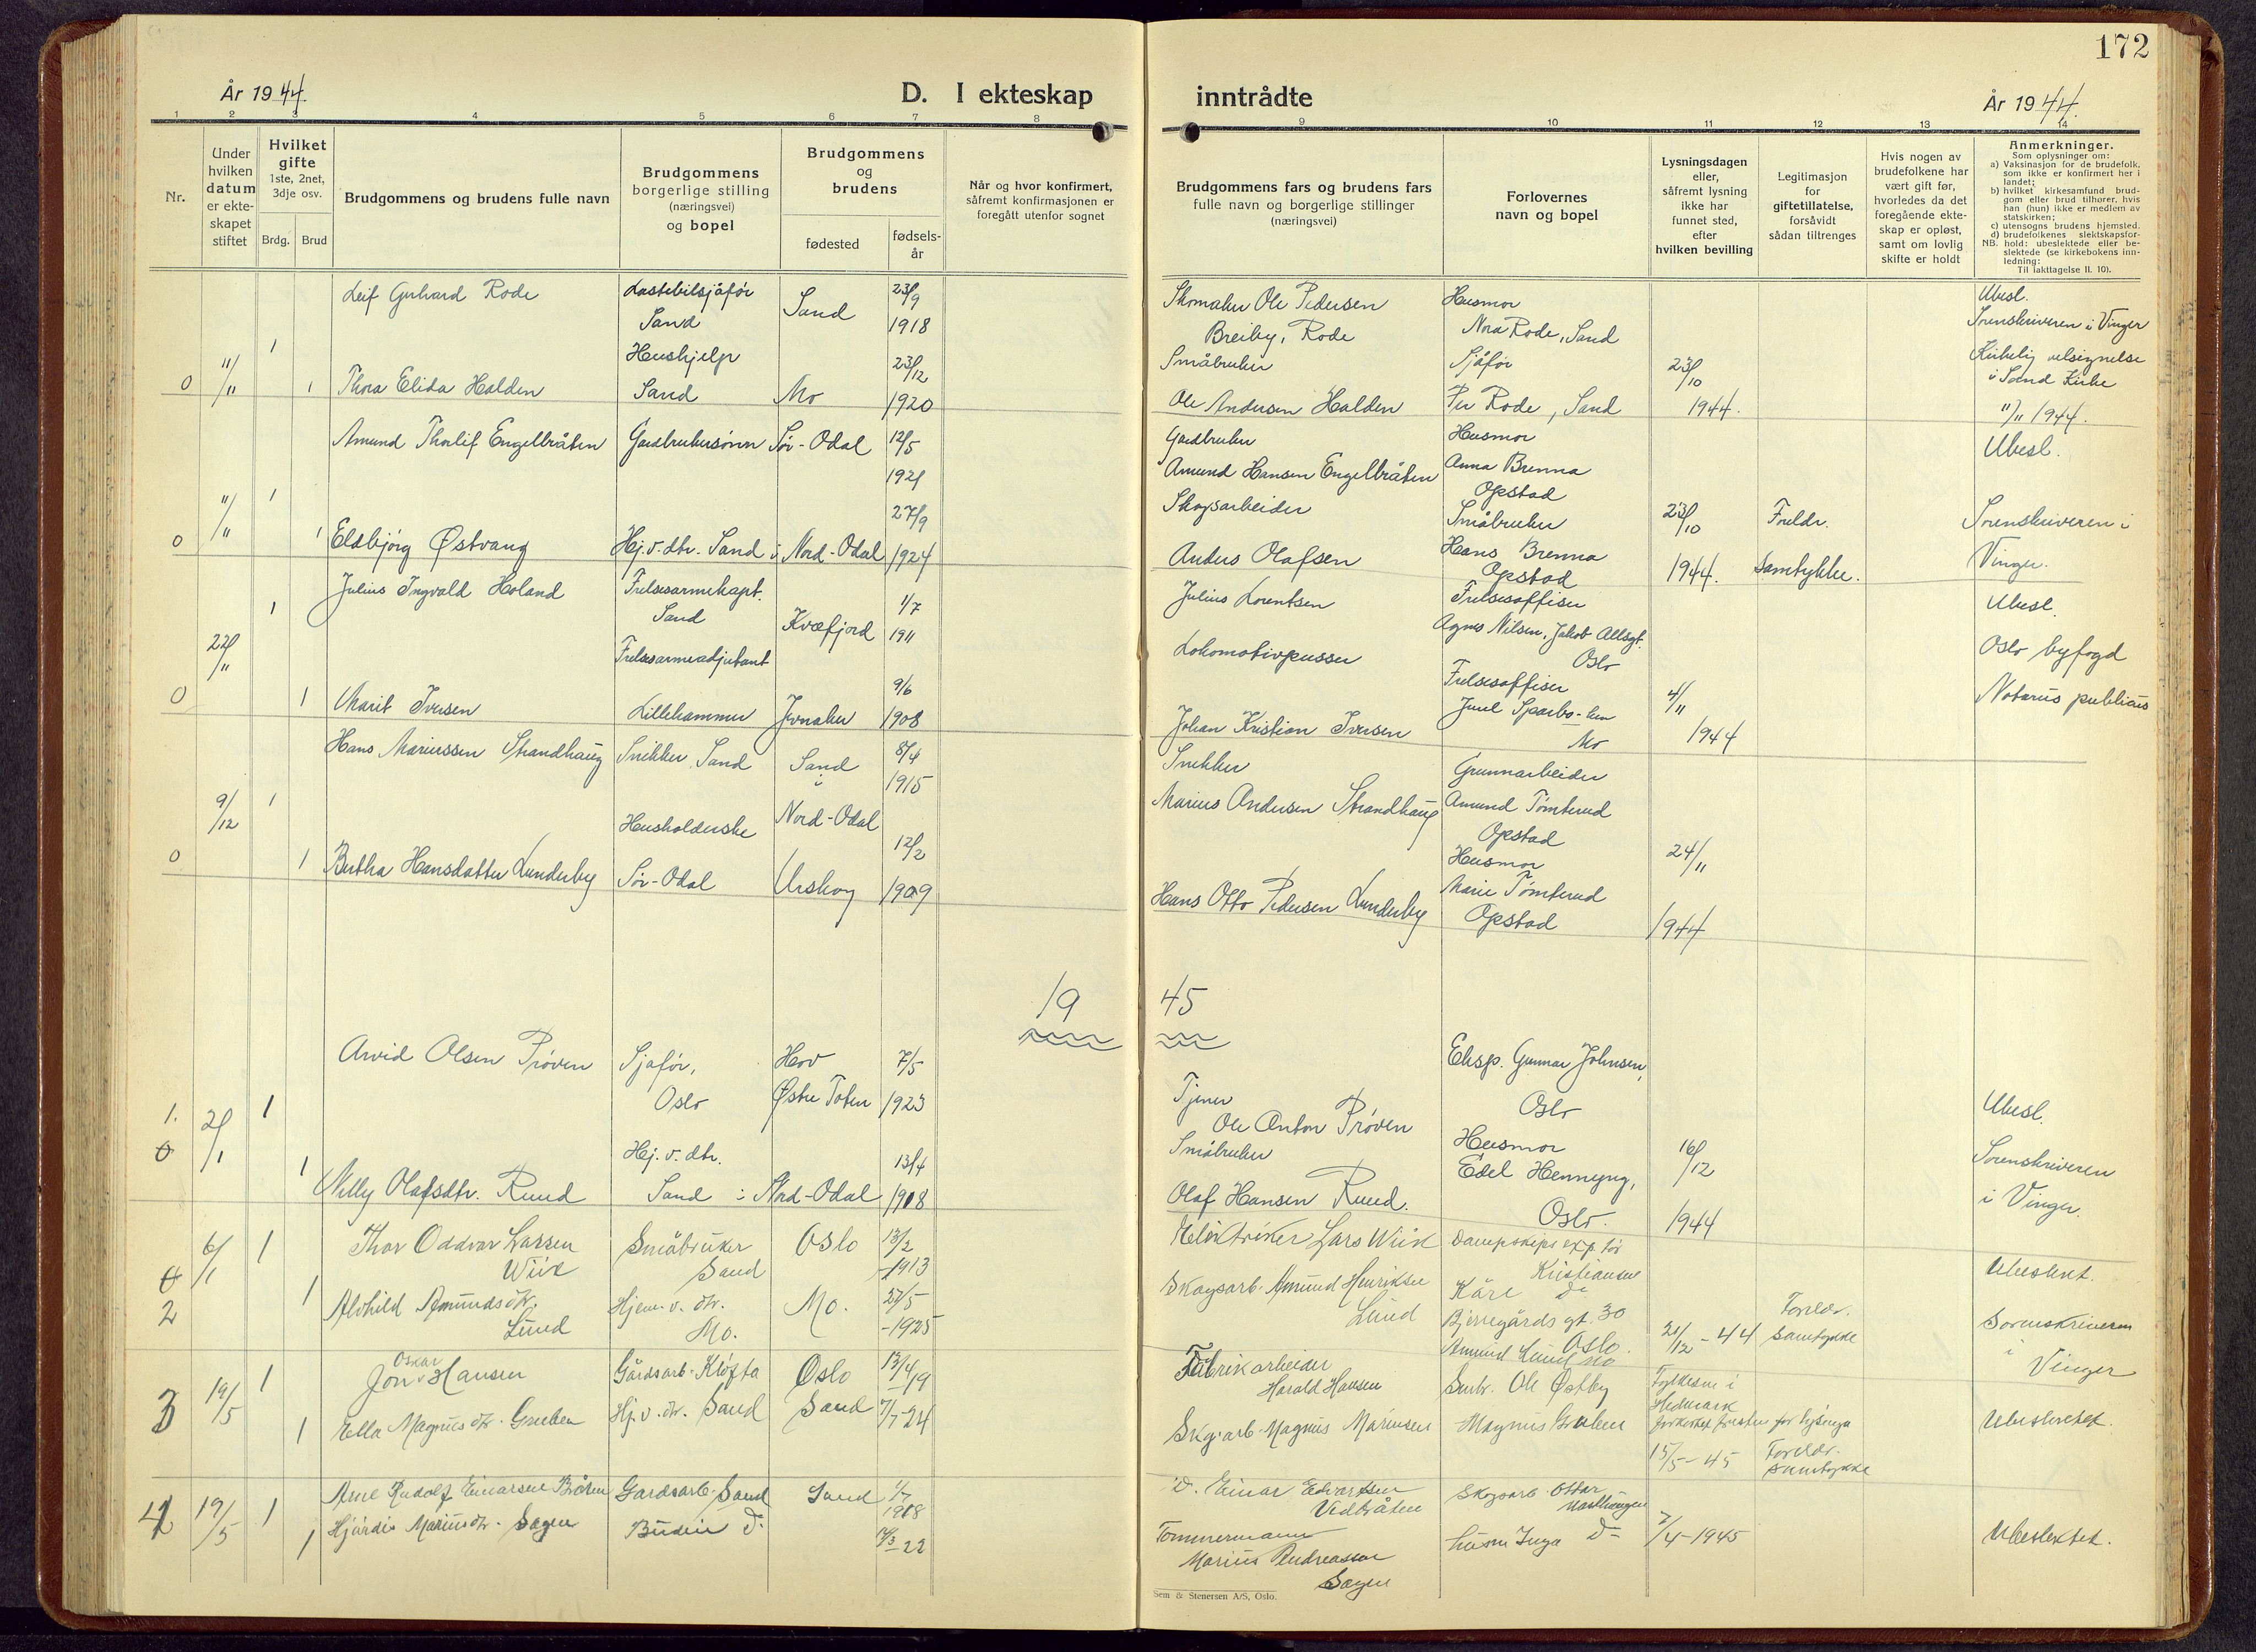 172
År 1944.
D. I ekteskap
inntrådte
År 1944.
1 2 3 4 5 6 7 8
9 10 11 12 13 14
Nr.
Under
hvilken
datum
er ekte-
skapet
stiftet
Hvilket
gifte
1ste, 2net,
3dje osv.
Brdg. Brud
Brudgommens og brudens fulle navn
Brudgommens
borgerlige stilling
(næringsvei)
og bopel
Brudgommens
og
brudens
fødested
fødsels-
år
Når og hvor konfirmert,
såfremt konfirmasjonen er
foregått utenfor sognet
Brudgommens fars og brudens fars
fulle navn og borgerlige stillinger
(næringsvei)
Forlovernes
navn og bopel
Lysningsdagen
eller,
såfremt lysning
ikke har
funnet sted,
efter
hvilken bevilling
Legitimasjon
for
giftetillatelse,
forsåvidt
sådan tiltrenges
Hvis nogen av
brudefolkene har
vært gift før,
hvorledes da det
foregående ekte-
skap er opløst,
samt om lovlig
skifte er holdt
Anmerkninger.
Som oplysninger om:
a) Vaksinasjon for de brudefolk,
som ikke er konfirmert her i
landet;
b) hvilket kirkesamfund brud-
gom eller brud tilhører, hvis
han (hun) ikke er medlem av
statskirken;
c) utensogns brudens hjemsted.
d) brudefolkenes slektskapsfor-
NB. hold: ubeslektede eller be-
slektede (se kirkebokens inn-
ledning:
Til iakttagelse II. 10).
0 11/11 1 Leif Gerhard Rode
Lastebilsjåfør
Sand
Sand
23/9
1918
Skomaker Ole Pedersen
Breiby, Rode
Husmor
Nora Rode, Sand
Ubesl.
Sorenskriveren i Vinger
Kirkelig velsignelse
i Sand Kirke
11/11 1944.
1 Thora Elida Halden
Hushjelp
Sand
Mo
23/12
1920
Småbruker
Ole Andersen Halden
Sjåfør
Per Rode, Sand
23/10
1944.
0 11/11 1 Amund Thorleif Engelbråten
Gardbrukersønn
Sør-Odal
12/5
1921
Gardbruker
Amund Hansen Engelbråten
Husmor
Anna Brenna
Opstad
Ubesl.
1 Eldbjørg Østvang
Hj.v.dtr. Sand i Nord-Odal
27/9
1924
Skogsarbeider
Anders Olafsen
Småbruker
Hans Brenna
Opstad
23/10
1944.
Foreldr.
Samtykke.
Sorenskriveren i
Vinger.
0 22/11 1 Julius Ingvald Holand
Frelsesarmékapt.
Sand
Kvæfjord
1/7
1911
Julius Lorentsen
Frelsesoffiser
Agnes Nilsen, Jakob Allsgt.
Oslo
Ubesl.
Oslo byfogd
Notarius publicus
1 Marit Iversen
Frelsesarméadjutant
Lillehammer
Jevnaker
9/6
1908
Lokomotivpusser
Johan Kristian Iversen
Frelsesoffiser
Juul
Mo
4/11
1944
0 9/12 1 Hans Mariussen Strandhaug
Snikker, Sand
Sand
i
Nord-Odal
8/4
1915
Snekker
Marius Andersen Strandhaug
Grunnarbeider
Amund Tømterud
Opstad
1 Bertha Hansdatter Lunderby
Husholderske
Sør-Odal
Urskog
12/2
1909
Hans Otto Pedersen Lunderby
Husmor
Marie Tømterud
Opstad
24/11
1944
19 45
1. 2/1 1 Arvid Olsen Prøven
0
Sjåfør,
Oslo
Hov
Østre Toten
7/5
1923
Tjener
Ole Anton Prøven
Eksp. Gunnar Johnsen,
Oslo
Ubesl.
Sorenskriveren
i Vinger.
1 Nelly Olafsdtr. Ruud
Hj.v.dtr.
Sand i Nord-Odal
13/4
1918
Småbruker
Olaf Hansen Ruud.
Husmor
Edel
Oslo.
16/12
1944
0 2 6/1 1 Thor Oddvar Larsen
Wiik
Småbruker
Sand
Oslo
13/2
-1913
Lars Wiik
Dampskips exp.
Kristiansen
Kåre do
Bjerregårds gt. 30
Oslo.
Ubeslekt.
1 Alvhild Amundsdtr.
Lund
Hjem.v.dtr.
Mo.
Mo.
27/5
-1925
Skogsarb. Amund Henriksen
Lund
Amund Lund Mo
21/12 - 44
Foreldr.
samtykke
Sorenskriveren
i Vinger
3 19/5 1 Jon Oskar Hansen
Gårdsarb. Kløfta
Oslo
13/4 19
Fabrikarbeider
Harald Hansen
Smbr. Ole Østby
Fylkesm i
Hedmark
for lysning
1 Ella Magnusdtr. Gruben
Hj.v.dtr. Sand
Sand
7/7-24
Skg.arb. Magnus Mariusen
Magnus Gruben
15/5-45
Foreldr.
samtykke
Ubeslektet.
4 19/5 1 Arne Rudolf Einarsen Bråten
Gardsarb. Sand
Sand
1/7
1918
Einar Edvartsen
Vedbråten
Skogsarb. Ottar
1 Hjørdis Mariusdtr. Sagen
Budeie do
-22
Tømmermann
Marius Andreassen
Sagen
husm Inga do
7/4-1945
Ubeslektet.
Sem & Stenersen A/S, Oslo.